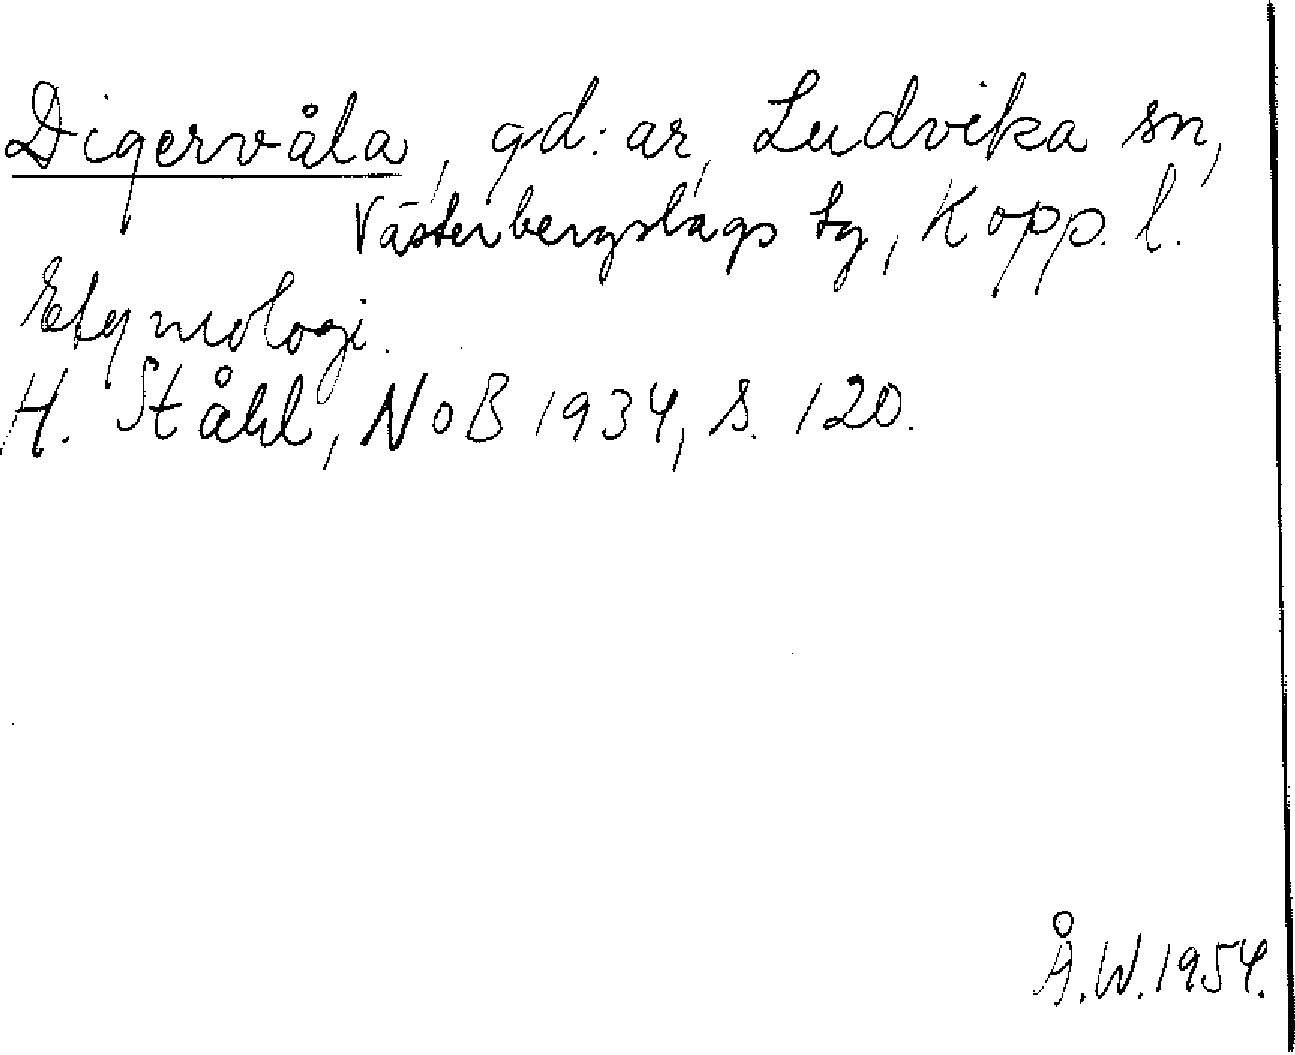 Digervåla, gd:ar, Ludvika sn,
Västerbergslags tg, Kopp. l.
Etymologi.
H. Ståhl, NoB 1934, s. 120.
Å.W. 1954.